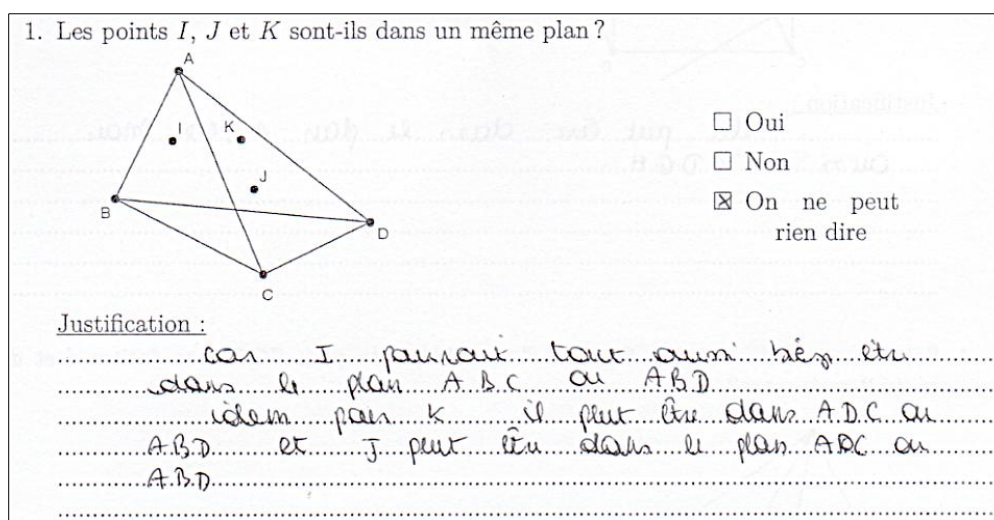 1. Les points I, J et K sont-ils dans un même plan ?
A
I
K
J
B
D
C
Oui
Non
On ne peut
rien dire
Justification :
car I pourrait tout aussi être
dans le plan ABC ou ABD
idem pour K il peut être dans ADC ou
ABD et J peut être dans le plan ADC ou
ABD